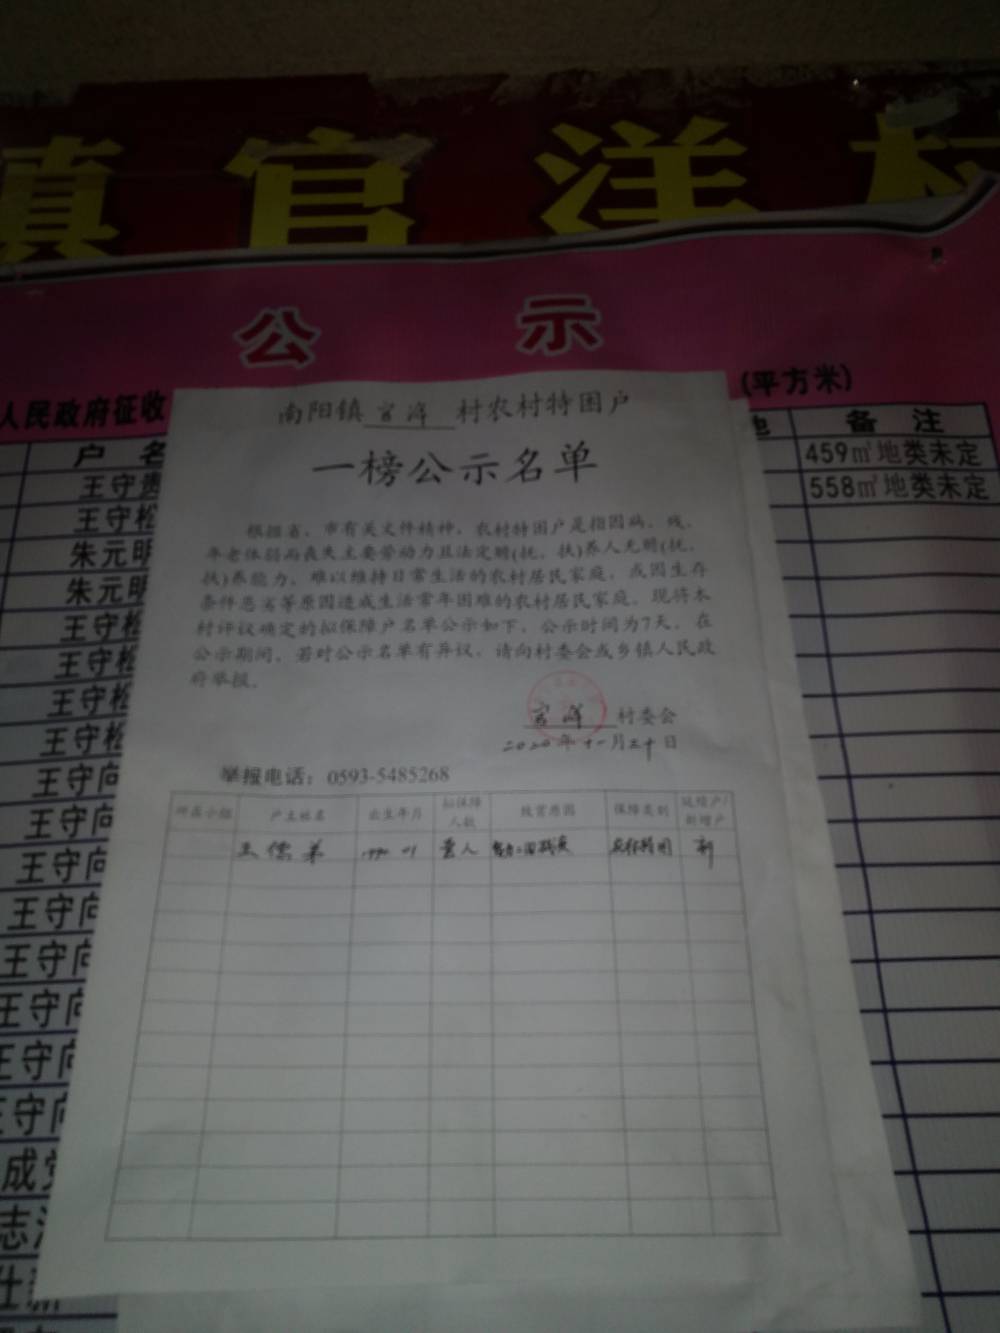 镇官洋村
公 示
人民政府征收
(平方米)
户 名
地
备 注
459㎡地类未定
558㎡地类未定
王守贵
王守松
朱元明
朱元明
王守松
王守松
王守松
王守松
王守向
王守向
王守向
王守向
王守向
王守向
王守向
王守向
成党
志
仕
南阳镇官洋村农村特困户
一榜公示名单
根据省、市有关文件精神，农村特困户是指因病、残、
年老体弱而丧失主要劳动力且法定赡(抚、扶)养人无赡(抚、
扶)养能力，难以维持日常生活的农村居民家庭，或因生存
条件恶劣等原因造成生活常年困难的农村居民家庭。现将本
村评议确定的拟保障户名单公示如下，公示时间为7天，在
公示期间，若对公示名单有异议，请向村委会或乡镇人民政
府举报。
官洋 村委会
2020年十一月三十日
举报电话：0593-5485268
所在小组 户主姓名 出生年月 拟保障人数 致贫原因 保障类别 延续户/新增户
王 弟 01 壹人 新